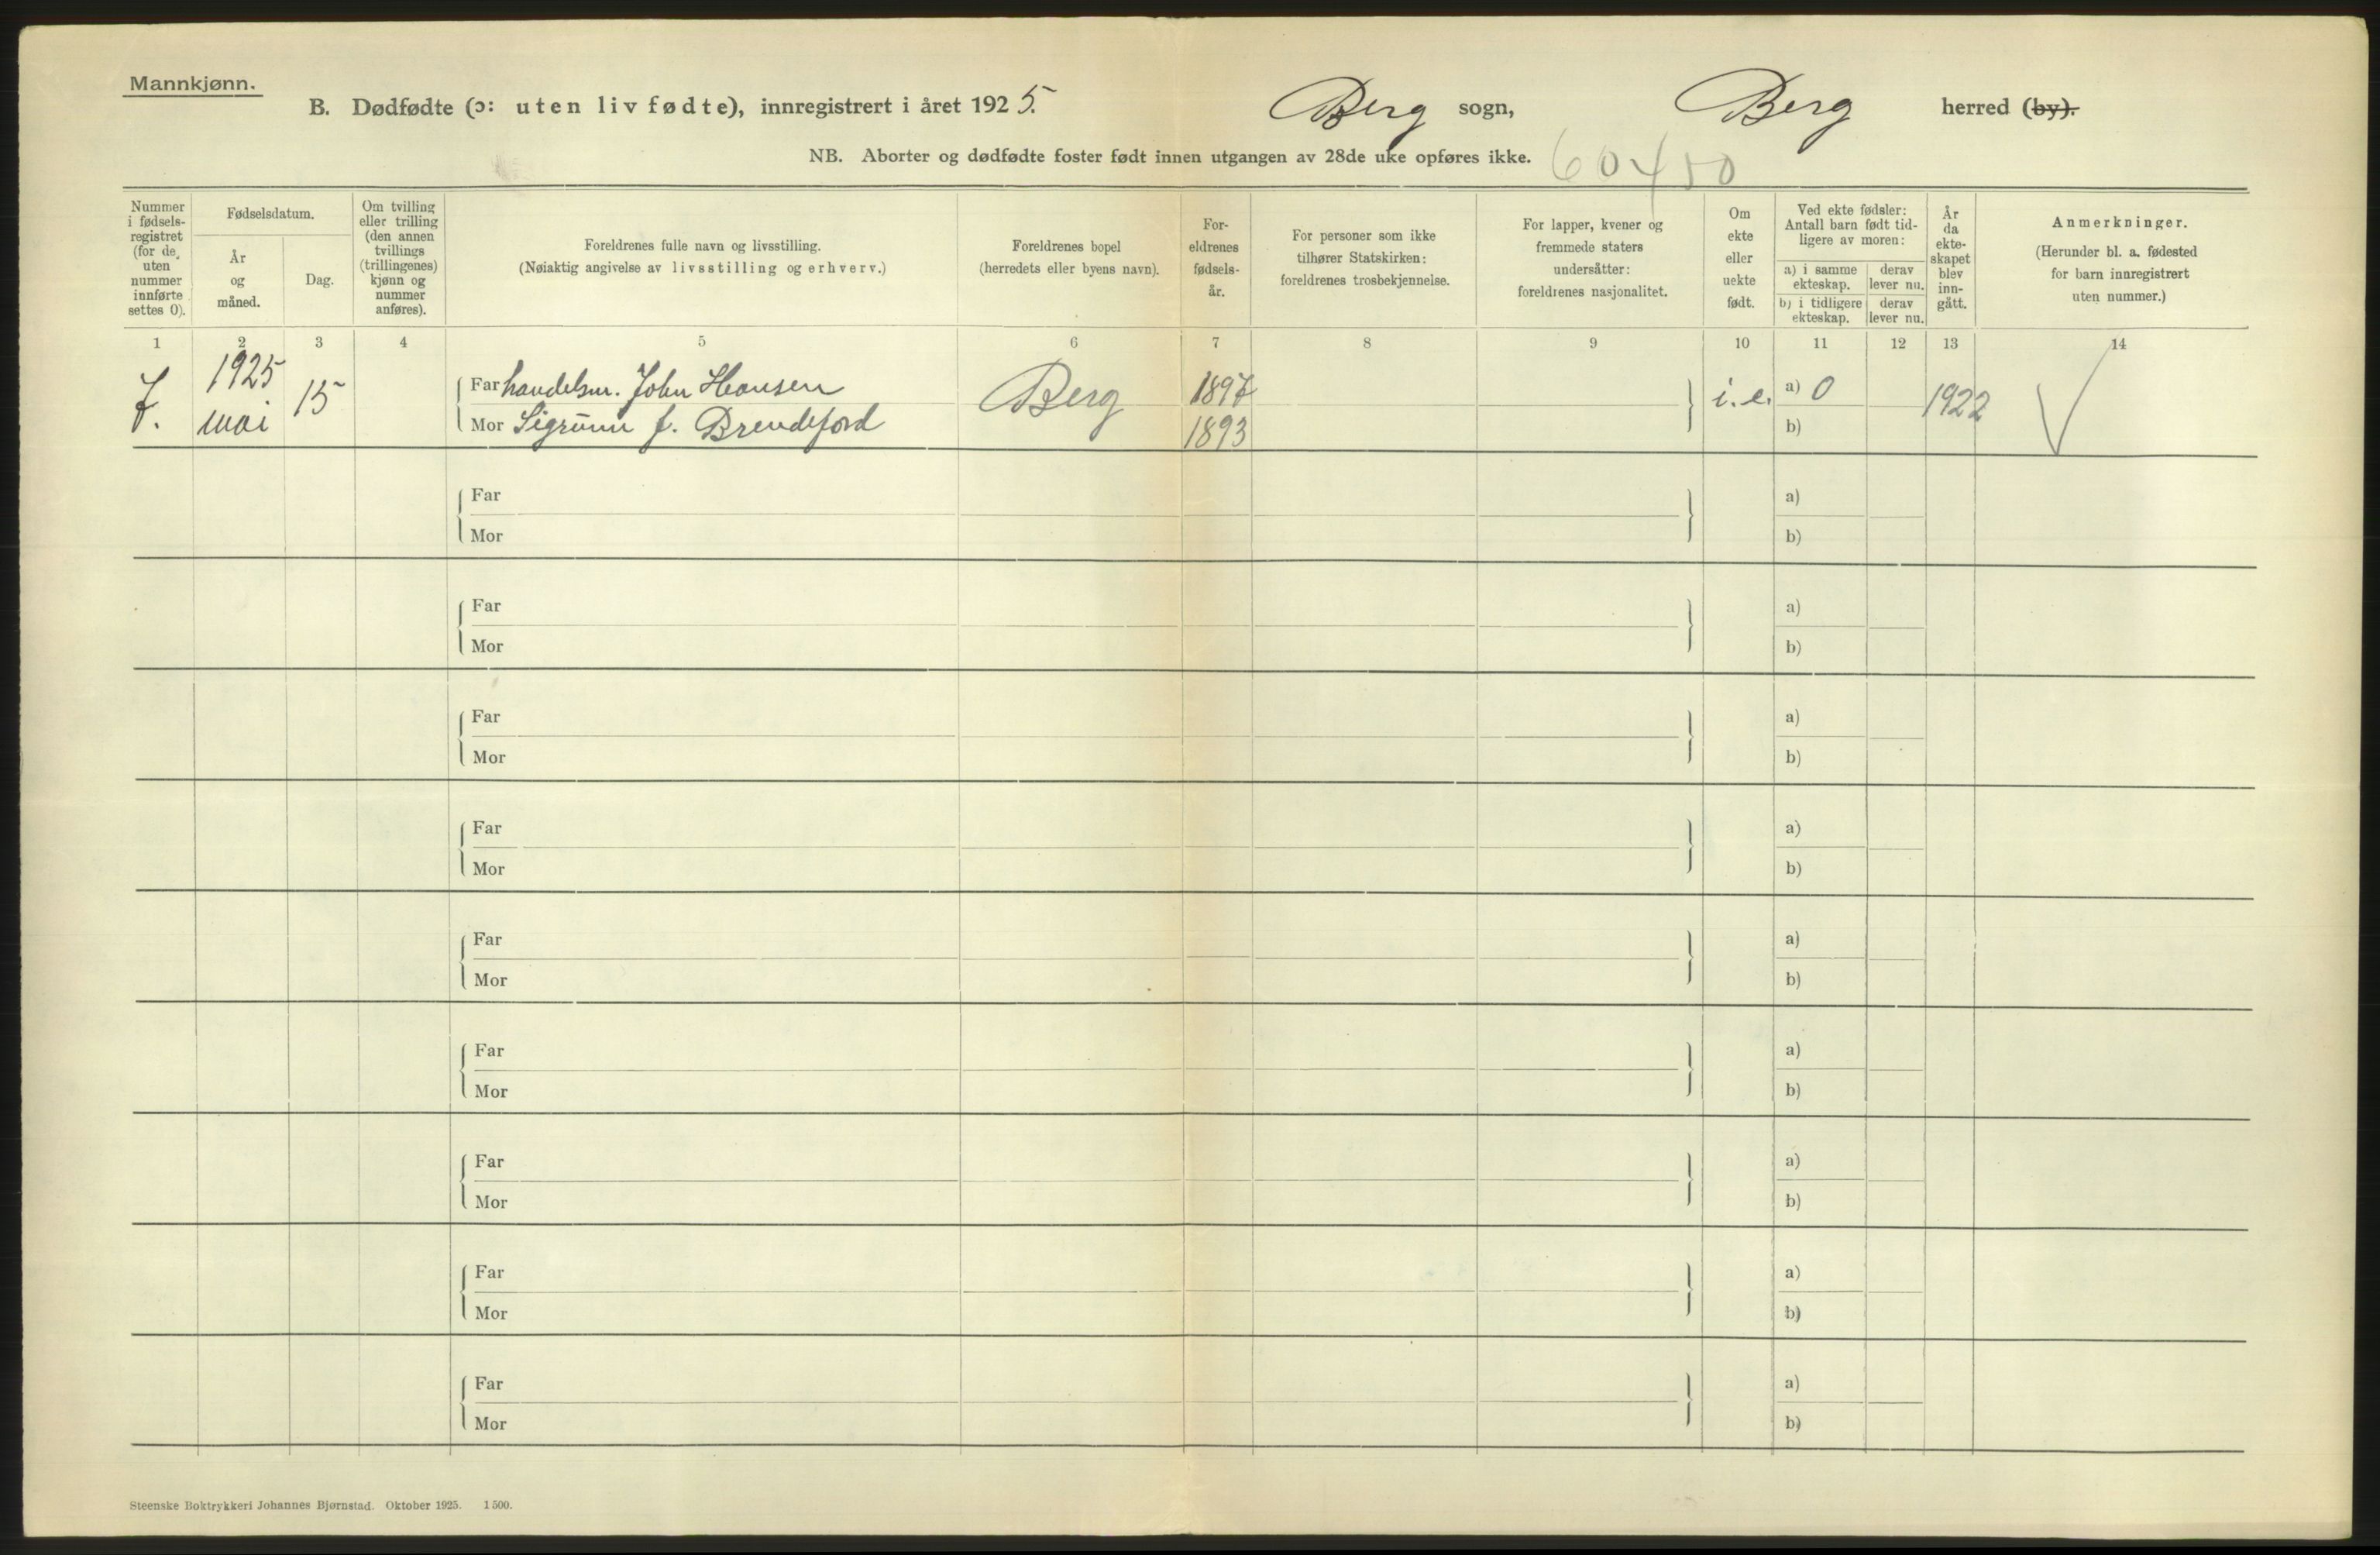 Mannkjønn.
B. Dødfødte (ɔ: uten liv fødte), innregistrert i året 1925. Berg sogn, Berg herred (by).
NB. Aborter og dødfødte foster født innen utgangen av 28de uke opføres ikke.
Nummer i fødsels-registret (for de uten nummer innførte settes 0).
Fødselsdatum.
År og måned.
Dag.
Om tvilling eller trilling (den annen tvillings (trillingenes) kjønn og nummer anføres).
Foreldrenes fulle navn og livsstilling.
(Nøiaktig angivelse av livsstilling og erhverv.)
Foreldrenes bopel
(herredets eller byens navn).
For-eldrenes fødsels-år.
For personer som ikke tilhører Statskirken: foreldrenes trosbekjennelse.
For lapper, kvener og fremmede staters undersåtter: foreldrenes nasjonalitet.
Om ekte eller uekte født.
Ved ekte fødsler: Antall barn født tid-ligere av moren:
a) i samme ekteskap.
derav lever nu.
b) i tidligere ekteskap.
derav lever nu.
År da ekte-skapet blev inn-gått.
Anmerkninger.
(Herunder bl. a. fødested for barn innregistrert uten nummer.)
1 2 3 4 5 6 7 8 9 10 11 12 13 14
7. 1925 mai 15
Far handelsm. John Hansen Berg 1897 i. e. a) 0 1922
Mor Sigrunn f. Brendeford 1893 b)
Far a)
Mor b)
Far a)
Mor b)
Far a)
Mor b)
Far a)
Mor b)
Far a)
Mor b)
Far a)
Mor b)
Far a)
Mor b)
Far a)
Mor b)
Far a)
Mor b)
Steenske Boktrykkeri Johannes Bjørnstad. Oktober 1925. 1500.